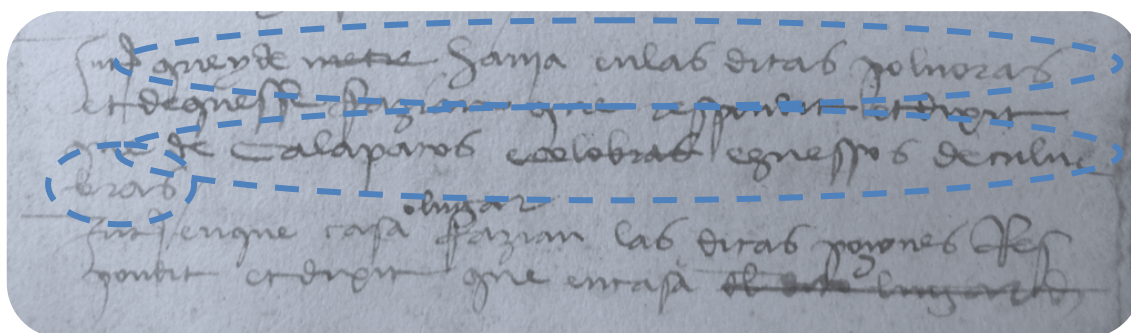 Int que y de metie Sania en las ditas poluoras
et de que se fazian que respondit et dixit
que de Calapatos e colobras e guessos de culue
bras
o lugar
Int en que casa fazian las ditas poçones Res
pondit et dixit que en casa